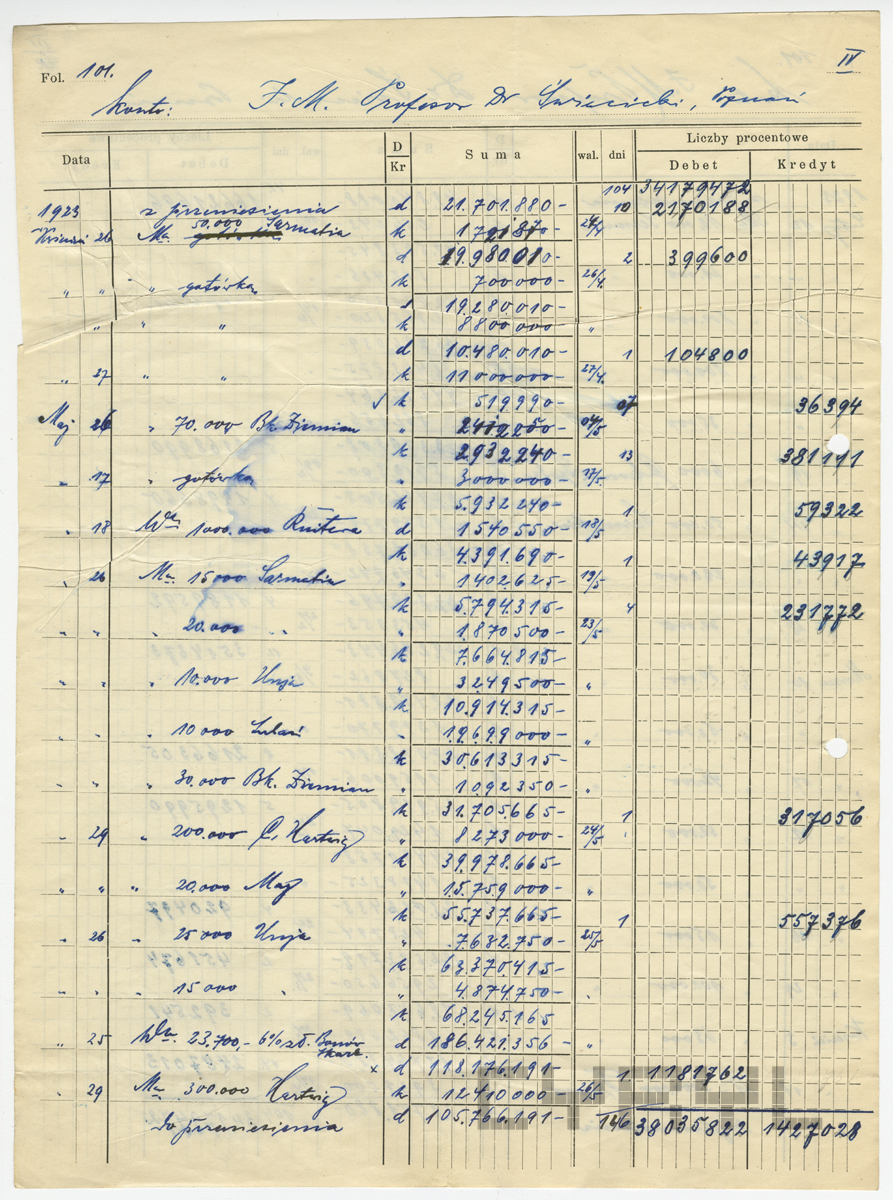 IV
Fol. 101.
Konto: J. M. Profesor Dr Święcicki, Poznań
Data D Kr Suma wal. dni Liczby procentowe
Debet Kredyt
104 34179472
1923 z przeniesienia d 21.701.880- 10 2170188
Kwiecień 26 Ma 50.000 Sarmatia k 1721870- 24/4
d 19.980010- 2 399600
" " " gotówka k 700000- 26/4
d 19.280010-
" " " k 8800000- "
d 10.480.010- 1 104800
" 27 " " k 11000000- 27/4
√ k 519990- 07 36394
Maj 26 " 70.000 Bk. Ziemian " 2412250- 04/5
k 2932240- 13 381111
" 17 " gotówka " 3000000- 17/5
k 5.932240- 1 59322
" 18 Wa 1000.000 Ruitera d 1540550- 18/5
k 4.391.690- 1 43917
" 26 Ma 15000 Sarmatia " 1402625- 19/5
k 5.794.315- 4 231772
" " " 20.000 " " " 1.870500- 23/5
k 7.664.815-
" " " 10.000 Unja " 3249500- "
k 10.914.315-
" " " 10000 Lubań " 19699000- "
k 30.613315-
" " " 30.000 Bk. Ziemian " 1092350- "
k 31.705.665- 1 317056
" 29 " 200.000 C. Hartwig " 8273000- 24/5
k 39.978.665-
" " " 20.000 May " 15.759000- "
k 55.737.665- 1 557376
" 26 " 25000 Unja " 7.682.750- 25/5
k 63.370.415-
" " " 15000 " " 4.874.750- "
k 68.245.165
" 25 Wa 23.700,- 6% zł. Bonów skarb. d 186.421.356- "
x d 118.176.191- 1 1181762
" 29 Ma 300.000 Hartwig k 12410000- 26/5
do przeniesienia d 105.766.191- 146 38035822 1427028